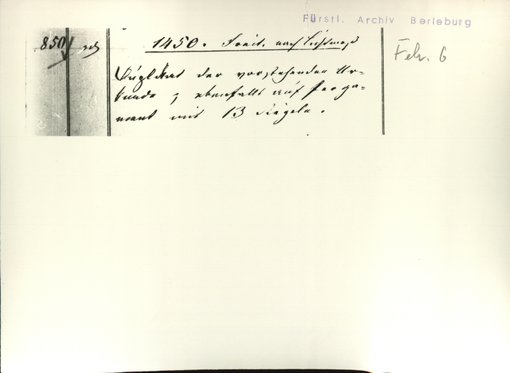 Fürstl. Archiv Berleburg
850
1450. Freit. nach Lichtmess
Febr. 6
Duplikat der vorstehenden Ur-
kunde, ebenfalls auf Perga-
ment mit 13 Siegeln.